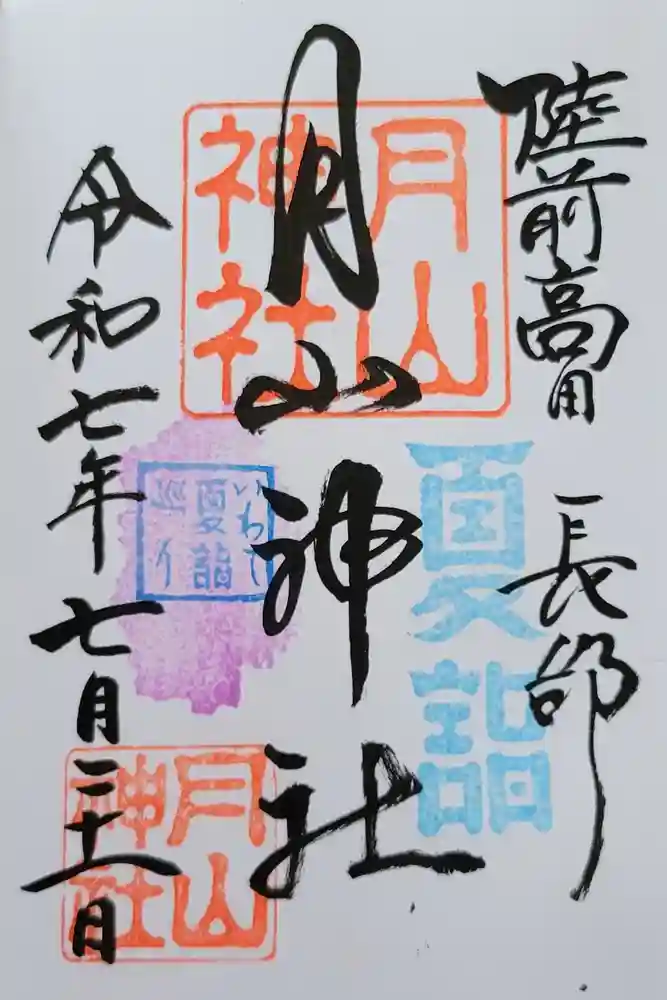 陸前高田 長部
夏詣
月山神社
月山
神社
いわて
夏詣
巡り
令和七年七月二十一日
月山
神社